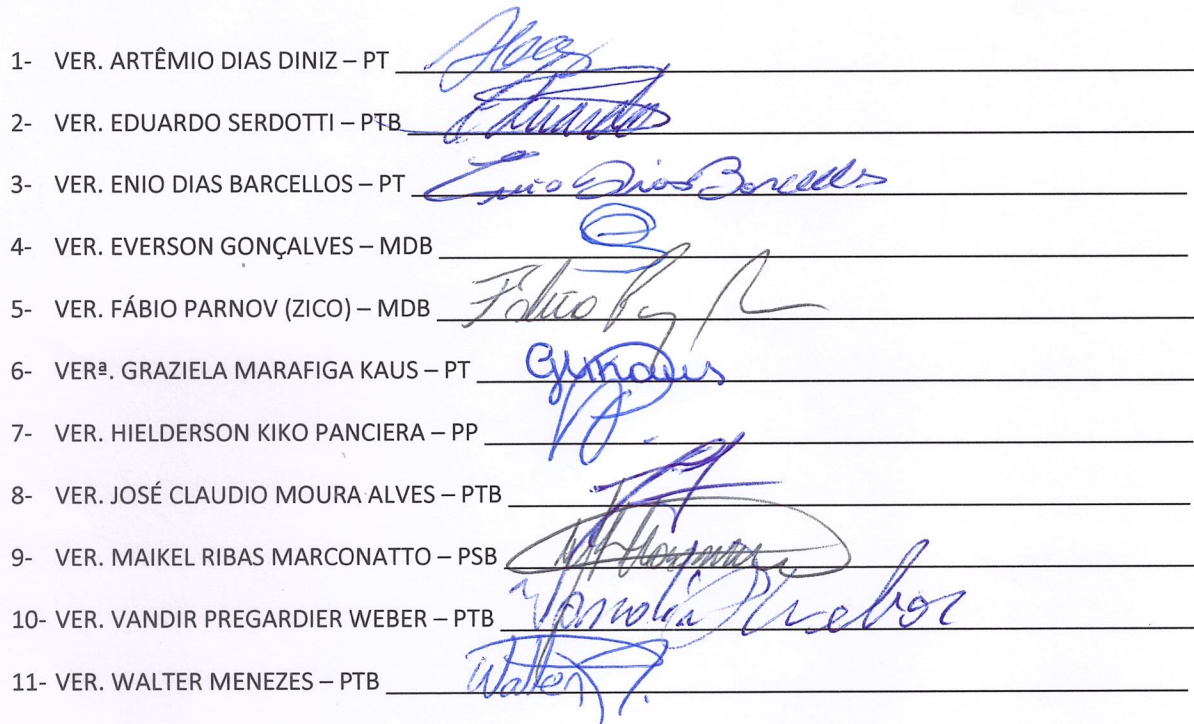 1- VER. ARTÊMIO DIAS DINIZ – PT
2- VER. EDUARDO SERDOTTI – PTB Eduardo
3- VER. ENIO DIAS BARCELLOS – PT Enio Dias Barcellos
4- VER. EVERSON GONÇALVES – MDB
5- VER. FÁBIO PARNOV (ZICO) – MDB Fábio
6- VERª. GRAZIELA MARAFIGA KAUS – PT GMKaus
7- VER. HIELDERSON KIKO PANCIERA – PP
8- VER. JOSÉ CLAUDIO MOURA ALVES – PTB
9- VER. MAIKEL RIBAS MARCONATTO – PSB
10- VER. VANDIR PREGARDIER WEBER – PTB Vandir P Weber
11- VER. WALTER MENEZES – PTB Walter